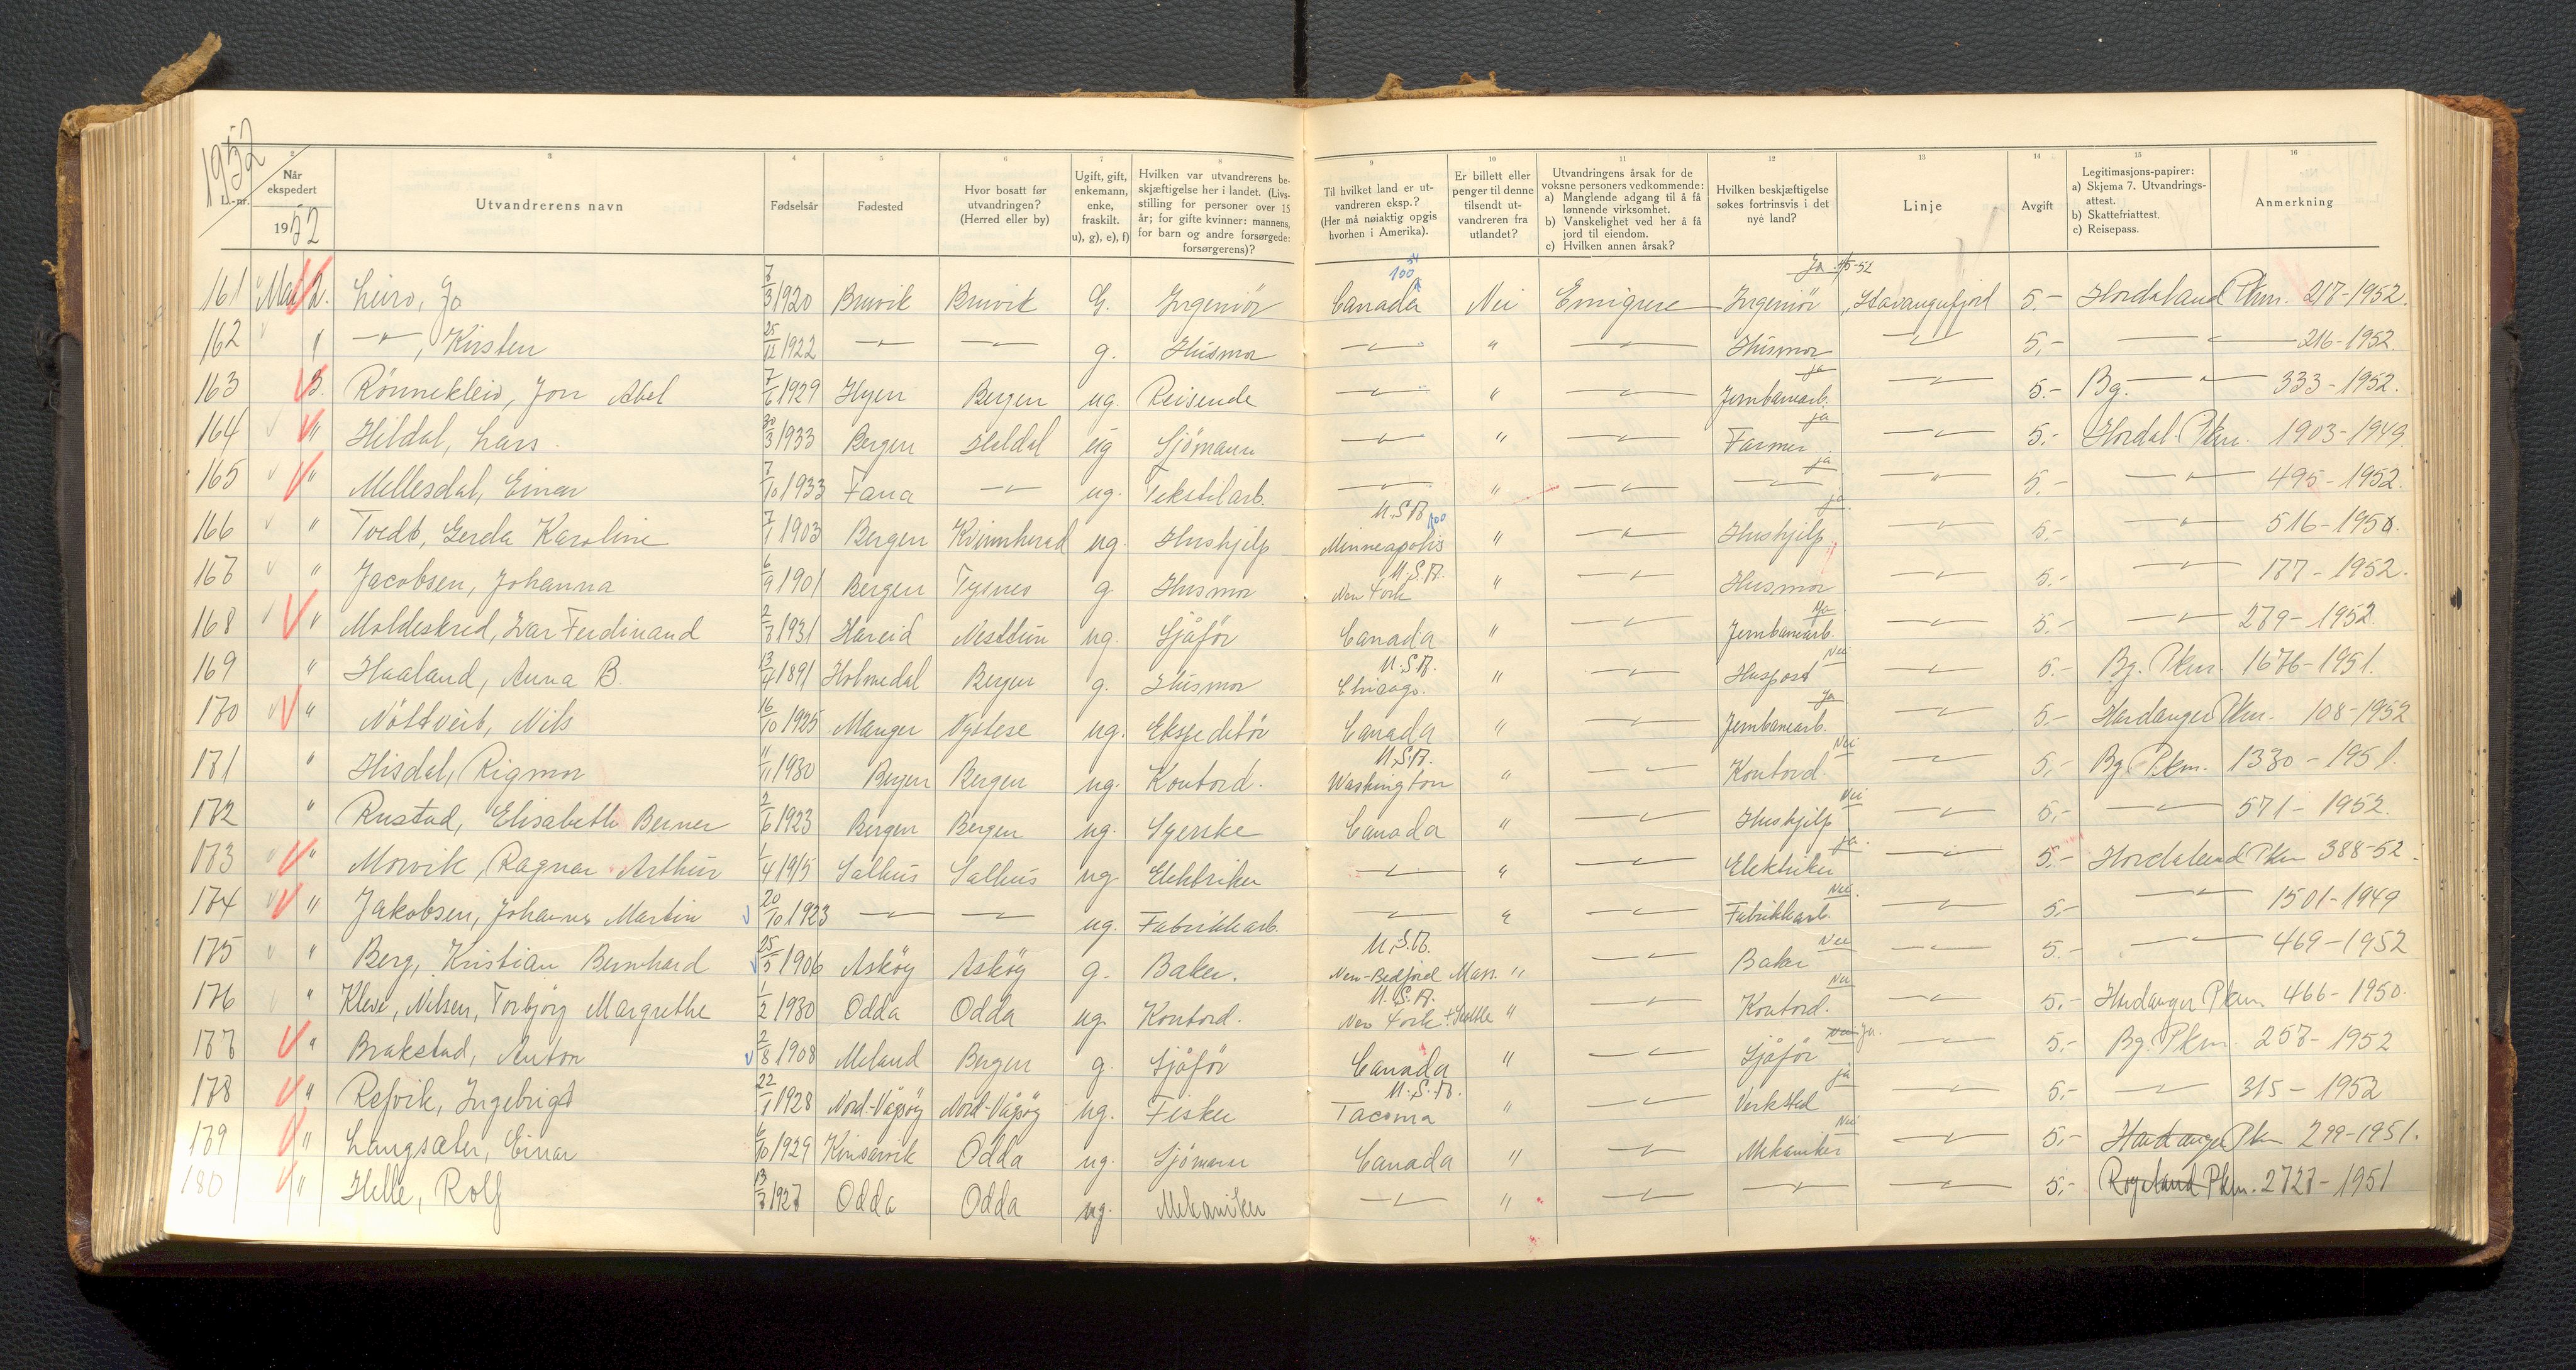 1952
1 2 3 4 5 6 7 8 9 10 11 12 13 14 15 16
L.-nr. Når ekspedert 1952 Utvandrerens navn Fødselsår Fødested Hvor bosatt før utvandringen? (Herred eller by) Ugift, gift, enkemann, enke, fraskilt. u), g), e), f) Hvilken var utvandrerens beskjæftigelse her i landet. (Livsstilling for personer over 15 år; for gifte kvinner: mannens, for barn og andre forsørgede: forsørgerens)? Til hvilket land er utvandreren eksp.? (Her må nøiaktig opgis hvorhen i Amerika). Er billett eller penger til denne tilsendt utvandreren fra utlandet? Utvandringens årsak for de voksne personers vedkommende: a) Manglende adgang til å få lønnende virksomhet. b) Vanskelighet ved her å få jord til eiendom. c) Hvilken annen årsak? Hvilken beskjæftigelse søkes fortrinsvis i det nye land? Linje Avgift Legitimasjons-papirer: a) Skjema 7. Utvandrings-attest. b) Skattefriattest. c) Reisepass. Anmerkning
161 Mai 2. Leiro, Jo 7/3 1920 Bruvik Bruvik G. Ingeniör Canada Nei Emigrere Ingeniör Ja 5-52 Stavangerfjord 5.- Hordaland Pkm. 217-1952.
162 " —"—, Kirsten 25/12 1922 —"— —"— g. Husmor —"— " —"— Husmor —"— 5,- —"— 216-1952.
163 3. Rönnekleiv, Jon Abel 7/6 1929 Hyen Bergen ug. Reisende —"— " —"— Jernbanearb. ja —"— 5.- Bg. —"— 333-1952.
164 " Hildal, Lars 30/3 1933 Bergen Hildal ug Sjömann —"— " —"— Farmer ja —"— 5,- Hordal. Pkm. 1903-1949
165 " Mellesdal, Einar 7/10 1933 Fana —"— ug. Tekstilarb. —"— " —"— —"— ja —"— 5.- —"— 495-1952.
166 " Tvedt, Gerda Karoline 7/1 1903 Bergen Kvinnherad ug. Hushjelp U.S.A. 100 Minneapolis " —"— Hushjelp ja —"— 5.- —"— 516-1950.
167 " Jacobsen, Johanna 6/9 1901 Bergen Tysnes g. Husmor U.S.A. New York " —"— Husmor —"— 5.- —"— 177-1952.
168 " Moldeskred, Ivar Ferdinand 2/8 1931 Hareid Nesttun ug. Sjåför Canada " —"— Jernbanearb. Ja —"— 5.- —"— 279-1952.
169 " Haaland, Anna B. 13/4 1891 Holmedal Bergen g. Husmor U.S.A. Chicago. " —"— Huspost Nei —"— 5.- Bg. Pkm. 1676-1951.
170 " Nöttveit, Nils 16/10 1925 Manger Nystese ug. Ekspeditör Canada " —"— Jernbanearb. Ja —"— 5.- Hardanger Pkm. 108-1952
171 " Hisdal, Rigmor 11/11 1930 Bergen Bergen ug. Kontord. U.S.A. Washington " —"— Kontord. Nei —"— 5,- Bg. Pkm. 1330-1951.
172 " Rustad, Elisabeth Berner 2/6 1923 Bergen Bergen ug. Syerske Canada " —"— Hushjelp Nei —"— 5,- —"— 571-1952.
173 " Morvik, Ragnar Arthur 1/4 1915 Salhus Salhus ug Elektriker —"— " —"— Elektriker ja. —"— 5,- Hordaland Pkm 388-52.
174 " Jakobsen, Johannes Martin 20/10 1923 —"— —"— ug. Fabrikkarb. —"— " —"— Fabrikkarb. Nei. —"— 5.- —"— 1501-1949
175 " Berg, Kristian Bernhard 25/5 1906 Asköy Asköy g. Baker. U.S.A. New-Bedford Mass. " —"— Baker Nei —"— 5.- —"— 469-1952
176 " Kleve, Nilsen, Torbjörg Margrethe 1/2 1930 Odda Odda ug. Kontord. U.S.A. New York + Seattle " —"— Kontord. Nei —"— 5,- Hardanger Pkm 466-1950.
177 " Brakstad, Anton 2/8 1908 Meland Bergen g. Sjåför Canada " —"— Sjåför Nei ja. —"— 5,- Bg. Pkm. 257-1952
178 " Refvik, Ingebrigt 22/1 1928 Nord-Vågsöy Nord-Vågsöy ug. Fisker U.S.A. Tacoma " —"— Verksted ja —"— 5,- —"— 315-1952
179 " Langsæter, Einar 6/10 1929 Kinsarvik Odda ug. Sjömann Canada " —"— Mekaniker Nei —"— 5,- Hardanger Pkm 299-1951.
180 " Helle, Rolf 13/3 1927 Odda Odda ug. Mekaniker —"— " —"— —"— —"— 5,- Rogaland Pkm. 2727-1951